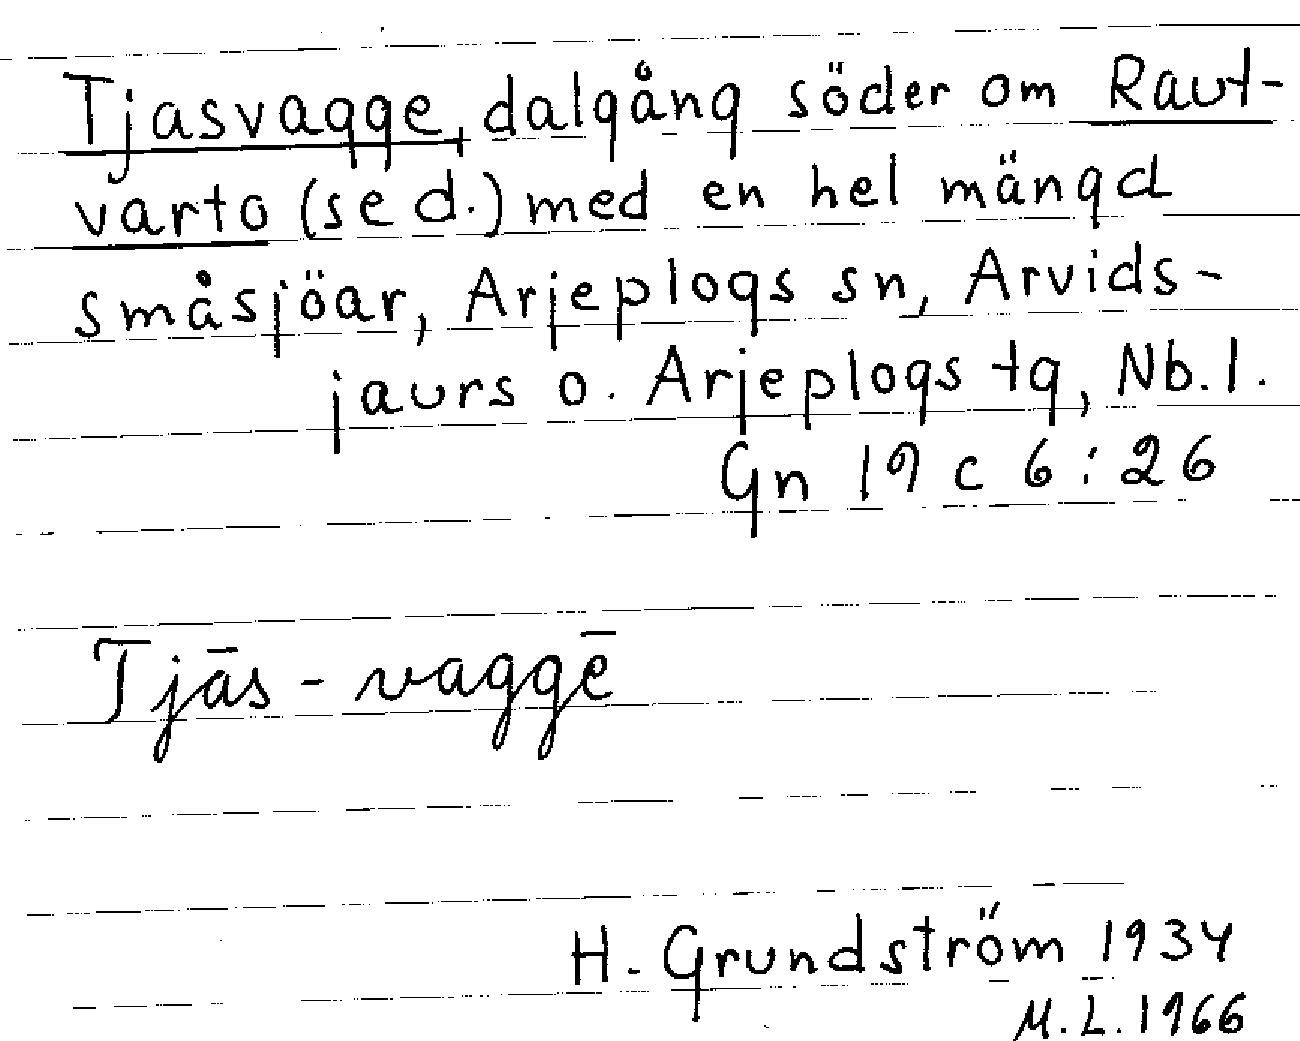 Tjasvagge, dalgång söder om Raut-
varto (se d.) med en hel mängd
småsjöar, Arjeplogs sn, Arvids-
jaurs o. Arjeplogs tg, Nb. l.
Gn 19 c 6:26
Tjās-vaggē
H. Grundström 1934
M.L. 1966